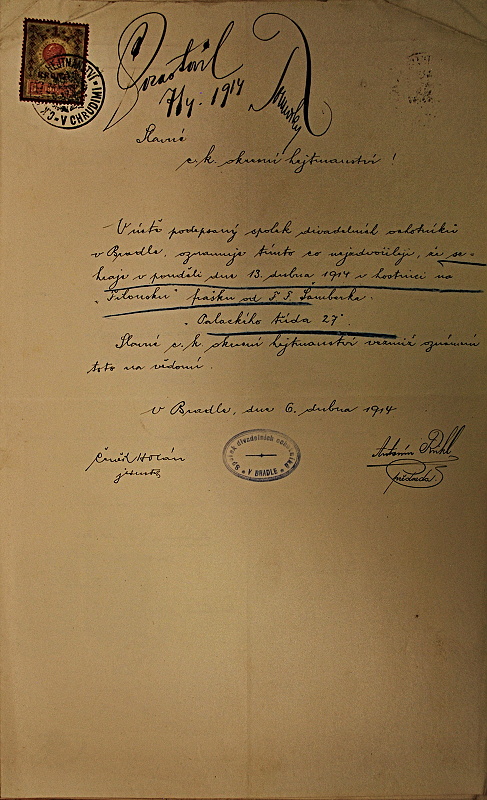 C.K. HEJTMANSTVÍ V CHRUDIMI
7/4. 1914
Slavné
c. k. okresní hejtmanství!
V úctě podepsaný spolek divadelních ochotníků
v Bradle, oznamuje tímto co nejzdvořileji, že se-
hraje v pondělí dne 13. dubna 1914 v hostinci na
"Filousku" frašku od F. F. Šamberka.
"Palackého třída 27".
Slavné c. k. okresní hejtmanství vezmiž oznámení
toto na vědomí.
V Bradle, dne 6. dubna 1914
Čeněk Holán
jednatel
Spolek divadelních ochotníků
V BRADLE
Antonín
předseda